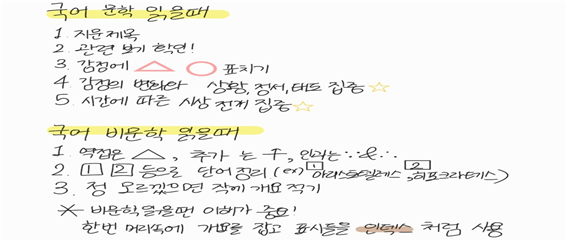 국어 문학 읽을때
1 지문제목
2 관련 보기 확인!
3 감정에 △ ○ 표치기
4 감정의 변화와 상황, 정서, 태도 집중 ☆
5. 시간에 따른 시상 전개 집중 ☆
국어 비문학 읽을때
1. 역접은 △, 추가는 +, 인과는 ∵ & ∴
2. 1 2 등으로 단어정리 (ex) 1 아리스토텔레스, 2 히포크라테스)
3. 정 모르겠으면 작게 개요적기
※ 비문학읽을땐 이해가 중요!
한번 머리속에 개요를 잡고 표시들을 인덱스 처럼 사용